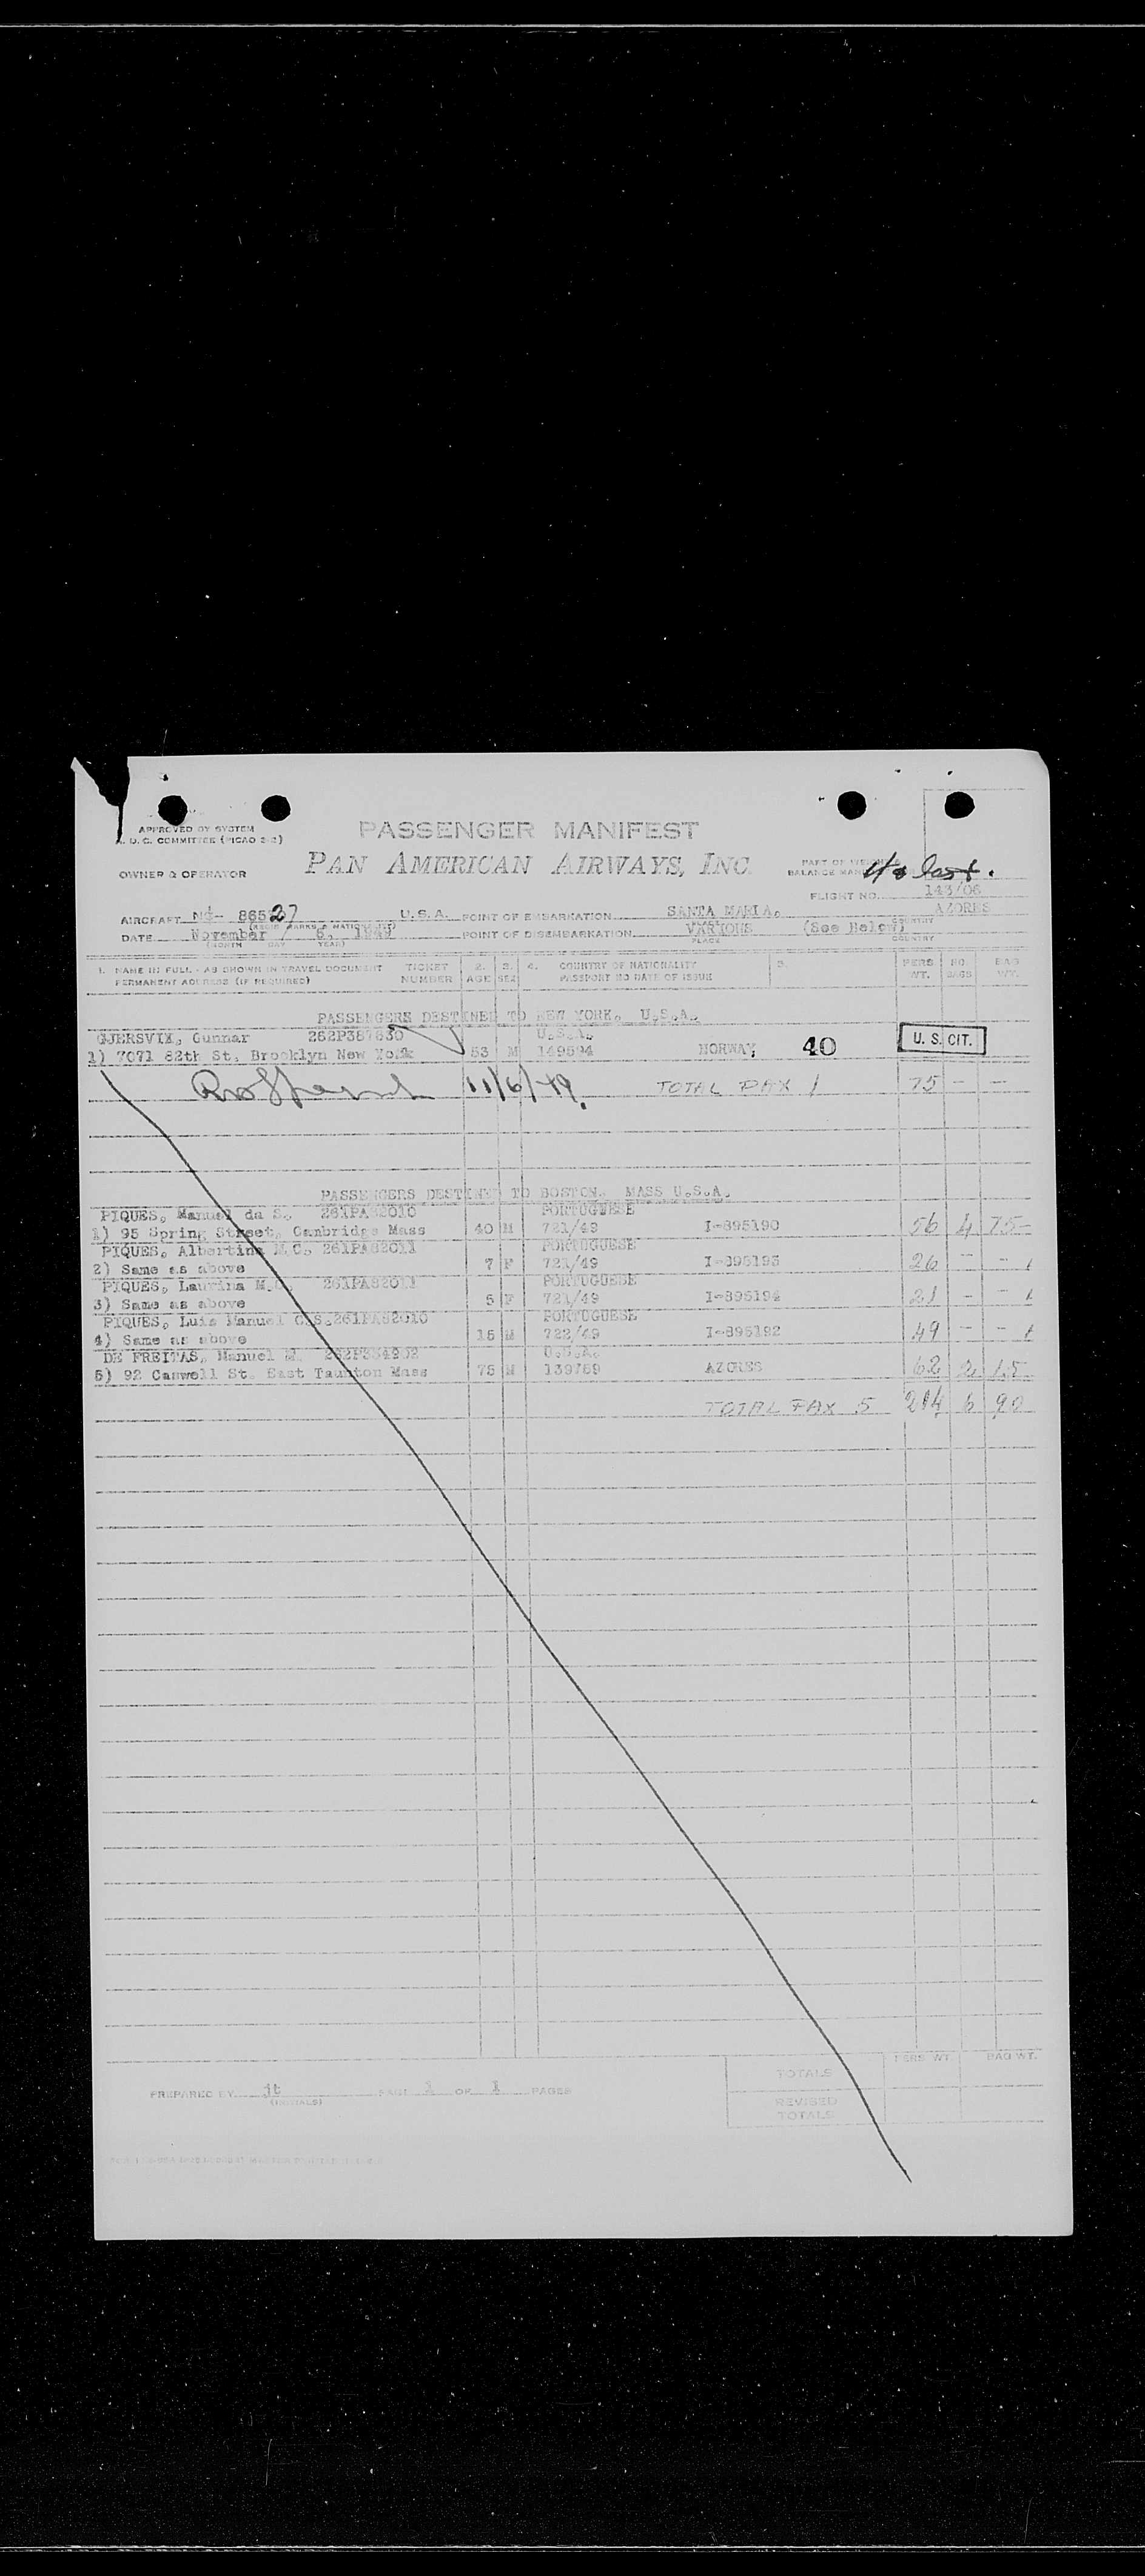 APPROVED BY SYSTEM
A. D. C. COMMITTEE (PICAO 2-2)
PASSENGER MANIFEST
PAN AMERICAN AIRWAYS, INC.
OWNER & OPERATOR
PART OF WEIGHT &
BALANCE
FLIGHT NO. 143/06
AIRCRAFT 86527 U. S. A. POINT OF EMBARKATION SANTA MARIA, AZORES
PLACE COUNTRY
DATE November 1949 POINT OF DISEMBARKATION VARIOUS (See Below)
(MONTH DAY YEAR) PLACE COUNTRY
1. NAME IN FULL - AS SHOWN IN TRAVEL DOCUMENT TICKET 2. 3. 4. COUNTRY OF NATIONALITY 5. PERS NO. BAG
PERMANENT ADDRESS (IF REQUIRED) NUMBER AGE SEX PASSPORT NO DATE OF ISSUE WT. BAGS WT.
PASSENGERS DESTINED TO NEW YORK, U.S.A.
GJERSVIK, Gunnar 262P387830 U.S.A.
1) 7071 82th St, Brooklyn New York 53 M 149594 NORWAY, 40 U. S. CIT.
11/6/49. TOTAL PAX 1 75 — —
PASSENGERS DESTINED TO BOSTON, MASS U.S.A.
PIQUES, Manuel da S. 261PA82010 PORTUGUESE
1) 95 Spring Street, Cambridge Mass 40 M 721/49 I-895190 56 4 75
PIQUES, Albertina M.C. 261PA82011 PORTUGUESE
2) Same as above 7 F 721/49 I-895193 26 — —
PIQUES, Laurina M.C. 261PA82011 PORTUGUESE
3) Same as above 5 F 721/49 I-895194 21 — —
PIQUES, Luis Manuel C.S. 261PA82010 PORTUGUESE
4) Same as above 15 M 722/49 I-895192 49 — —
DE FREITAS, Manuel M. U.S.A.
5) 92 Caswell St. East Taunton Mass 75 M 139789 AZORES 62 2 15
TOTAL PAX 5 214 6 90
PERS WT. BAG WT.
TOTALS
PREPARED BY jt PAGE 1 OF 1 PAGES
(INITIALS)
REVISED
TOTALS